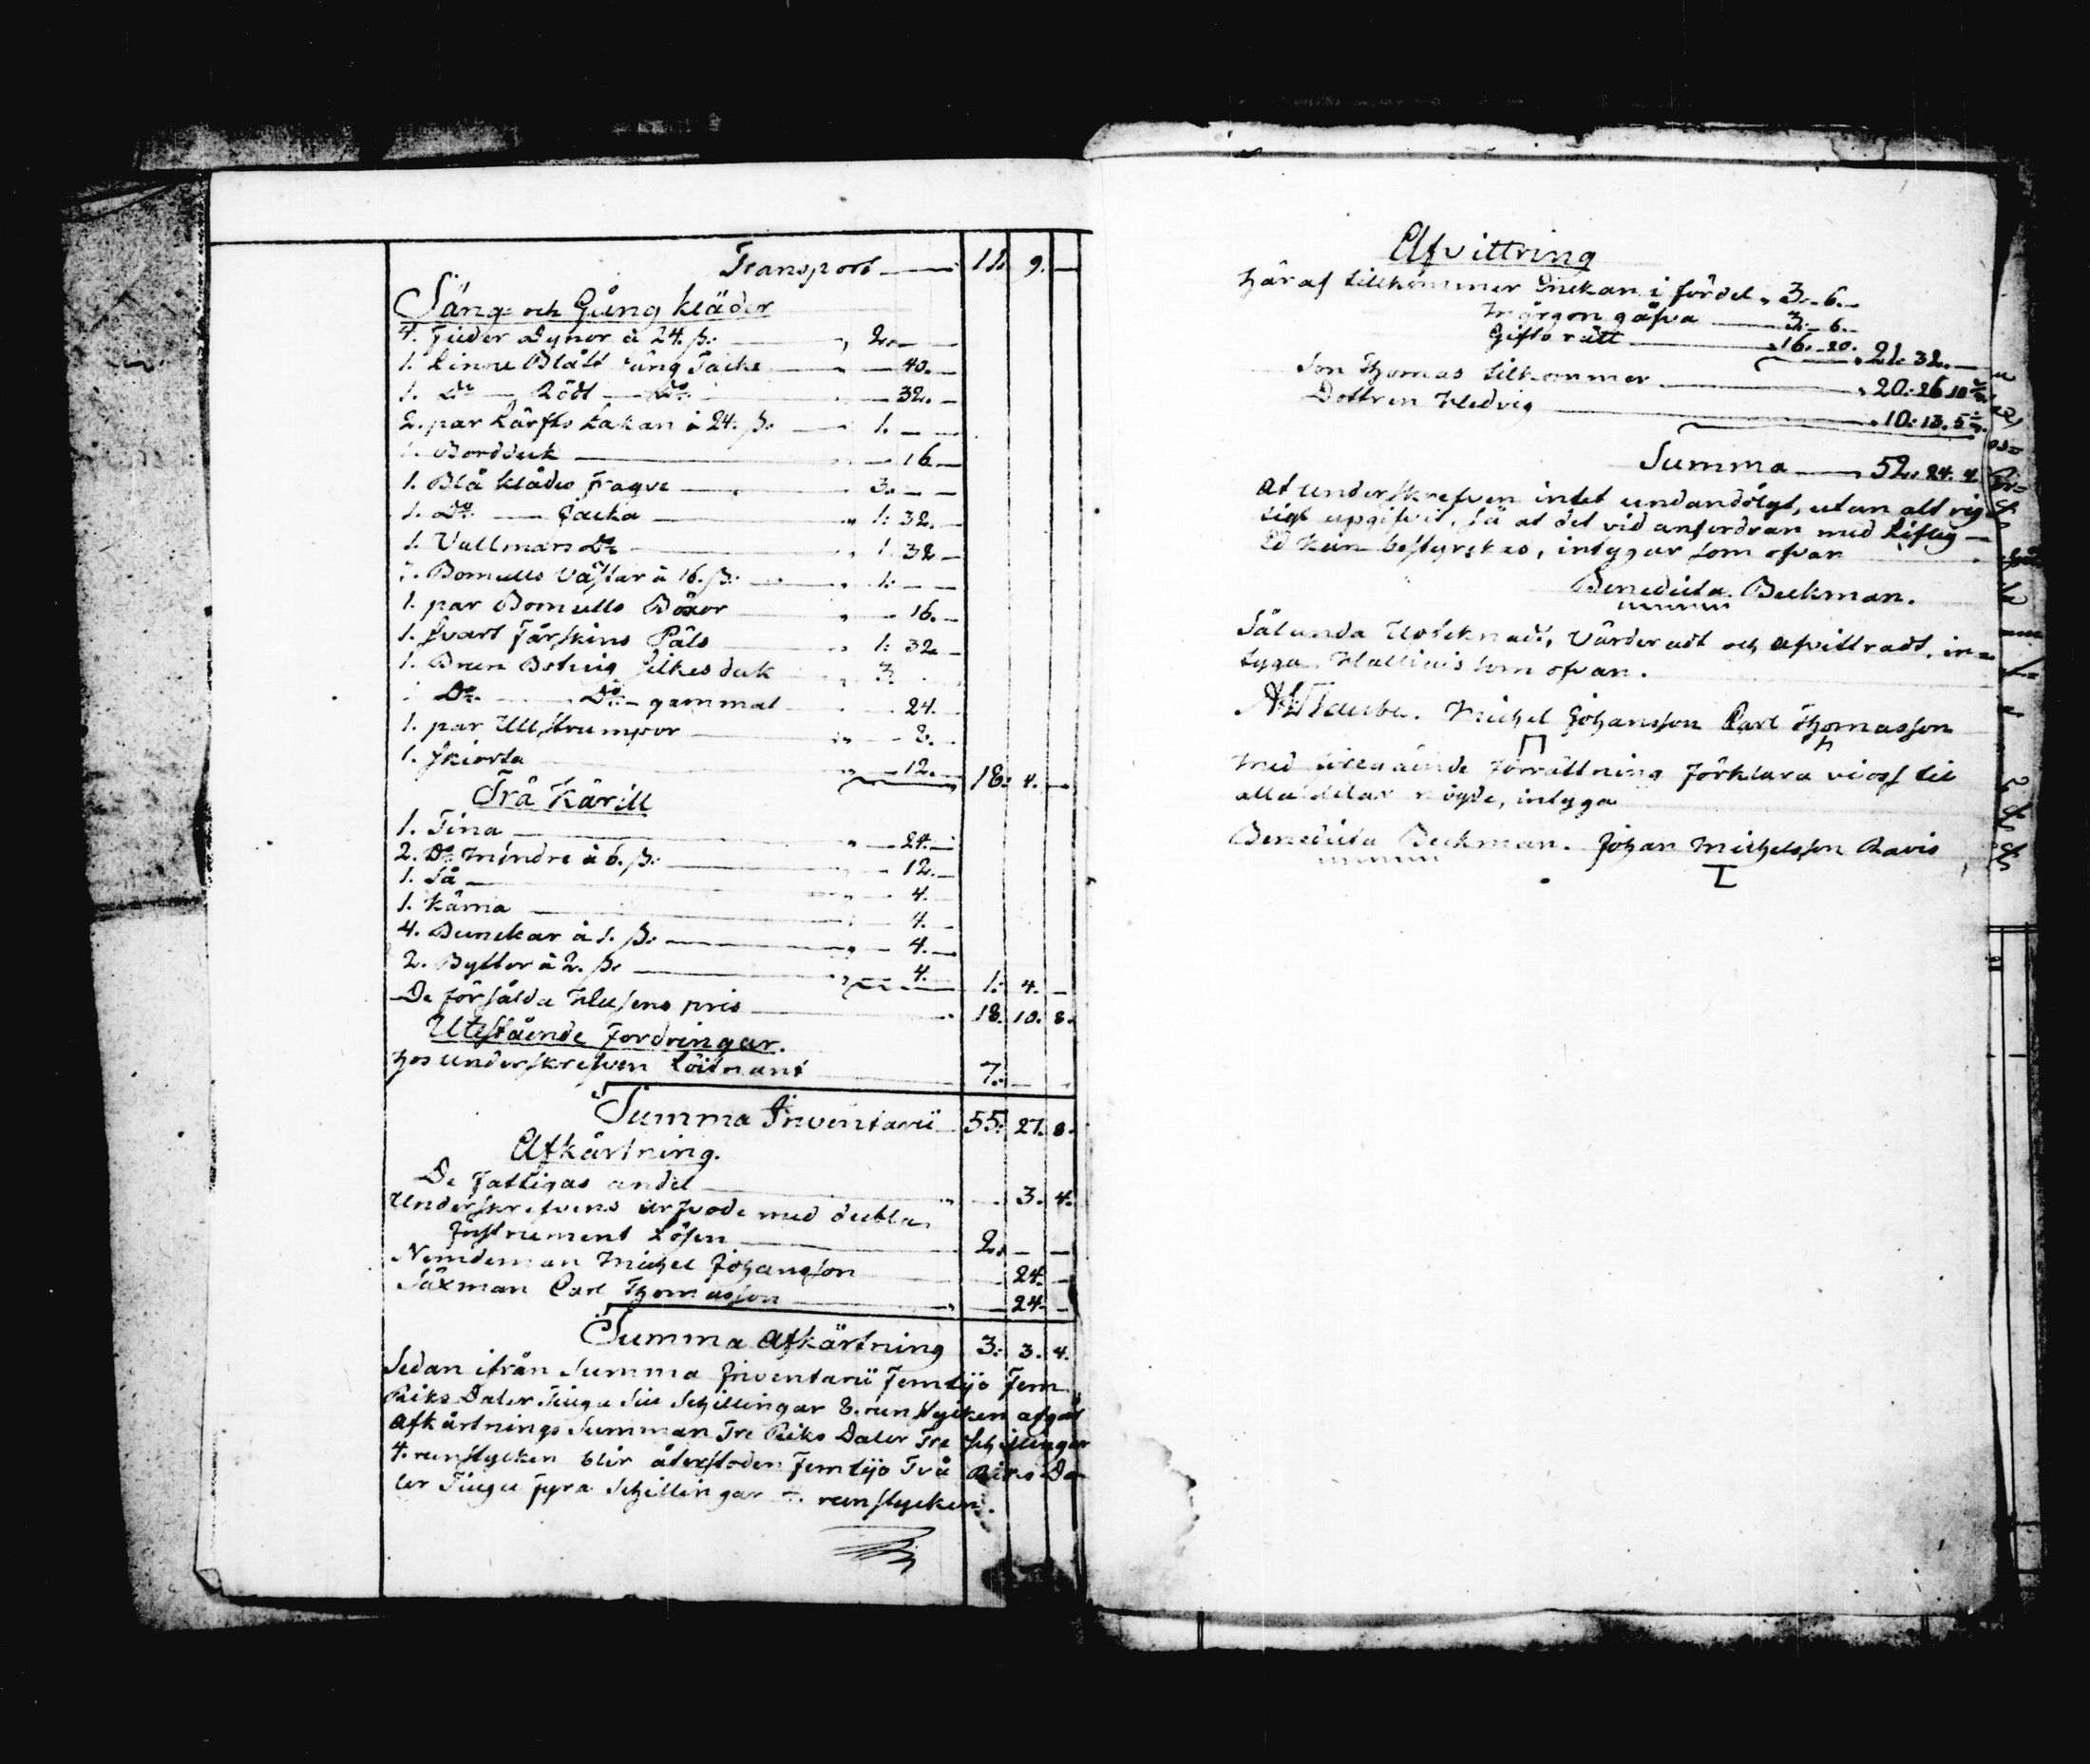 Transport — 11. 9. —
Säng- och Gång kläder
4. Fieder Dynor à 24. ß: — „ 2. — —
1. Linne Blått Säng Täcke — — 40. —
1. Do — Rödt — Do — — 32. —
2. par Lärfts Lakan à 24: ß: — 1. — —
1. Bordduk — — 16 —
1. Blå klädes Fraque — 3. — —
1. Do — Jacka — „ 1: 32. —
1. Vallmars Do — „ 1: 32 —
3. Bomulls Västar à 16. ß: — „ 1: — —
1. par Bomulls Böxor — „ — 16. —
1. Svart Fårskins Päls — „ 1: 32 —
1. Brun silkes duk — „ 3.
1 Do — Do — gammal — 24.
1. par Ull Strumpor — „ — 8. —
1. Skiorta — „ — 12. — 18: 4. —
Trä Kärill
1. Tina — „ — 24. —
2. Do Mindre à 6. ß: — — 12. —
1. Så — — 4. —
1. Kärna — — 4. —
4. Bunckar à 1. ß: — „ — 4. —
2. Byttor à 2. ß: — „ — 4. — 1: 4. —
De försålda Husens pris — 18. 10. 8.
Utestående Fordringar.
hos underskrefven Löitnant — 7. — —
Summa Inventarii 55. 27. 8.
Afkårtning.
De Fattigas andel — „ — 3. 4.
Underskrefvens arfvode med dubla
Instrument Lösen — 2. — —
Nemdeman Michel Johansson — 24. —
Säxman Carl Thomasson — „ — 24. —
Summa Afkårtning 3: 3. 4.
Sedan ifrån Summa Inventarii Femtijo Fem
Riks Daler Tiugu Siu Schillingar 8. runstycken afgår
Afkårtnings Summan Tre Riks Daler Tre Schillingar
4. runstycken blir återstoden Femtijo Två Riks Da-
ler Tiugu fyra Schillingar 4. runstycken.
Afvittring
Häraf tillkommer Enckan i fördel „ 3. 6. —
Morgongåfva — 3. 6. —
Giftorätt — „ 16. 20. „ 21: 32. —
Son Thomas tillkommer — „ 20: 26 10
Dottren Hedvig — „ 10: 13. 5
Summa — 52. 24. 4.
At underskrefven intet undandölgt, utan alt rig-
tigt upgifvit, så at det vid anfordran med Liflig
Ed kan bestyrckas, intygar som ofvan
Benedicta Beckman.
Sålunda Uptecknadt, Värderadt och afvittradt, in-
tyga Hallinis som ofvan.
Taube. Michel Johansson Carl Thomasson
Med föregående förrättning förklara vi oss til
alla delar nögde, intyga
Benedicta Beckman. Johan Michelsson Ravis